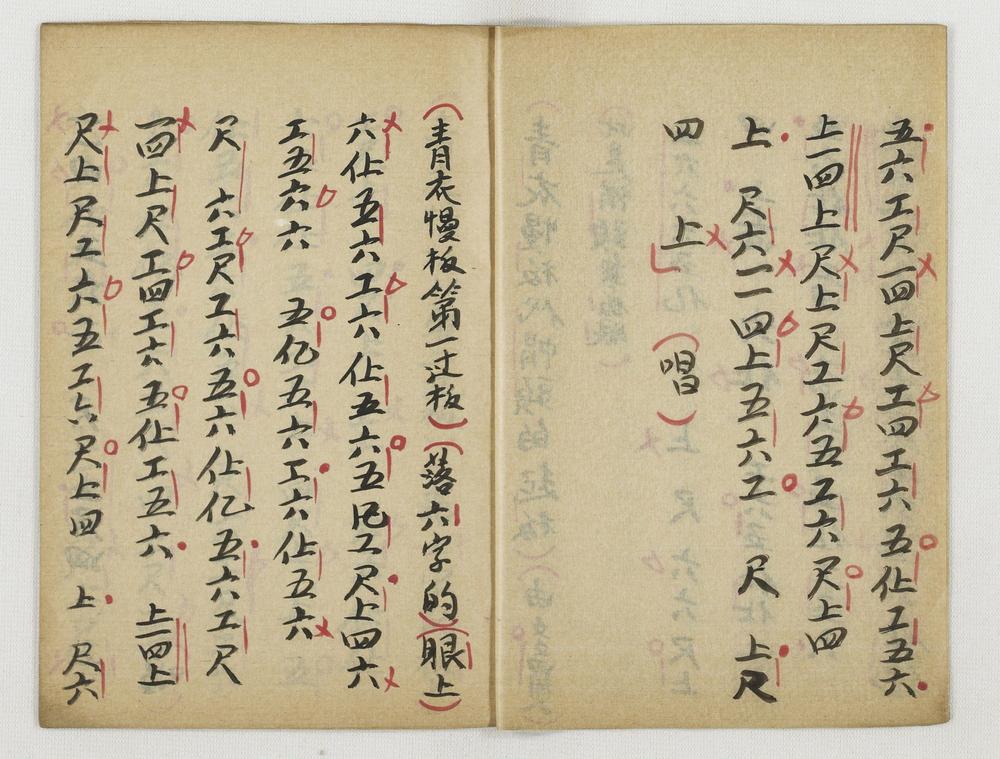 五六工尺一四上尺工四工六五仩工五六
上一四上尺上尺工六五工六尺上四
上尺六一一四上五六工尺上尺
四上（唱）
（青衣慢板第一过板）（落六字的）（眼上）
六仩五六工六仩五六五凡工尺上四六
工五六六五亿五六工六仩五六
尺六工尺工六五六仩亿五六工尺
一四上尺工四工六五仩工五六上一四上
尺上尺工六五工六尺上四上尺六